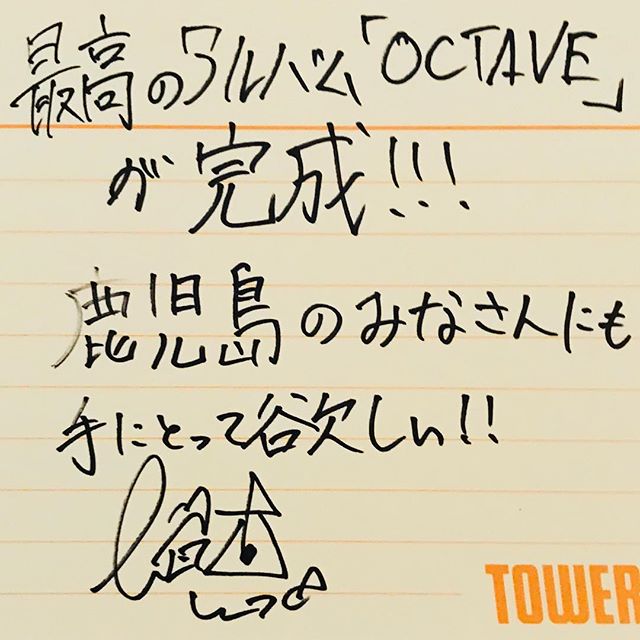 最高のアルバム「OCTAVE」
が完成!!!
鹿児島のみなさんにも
手にとって欲しい!!
TOWER